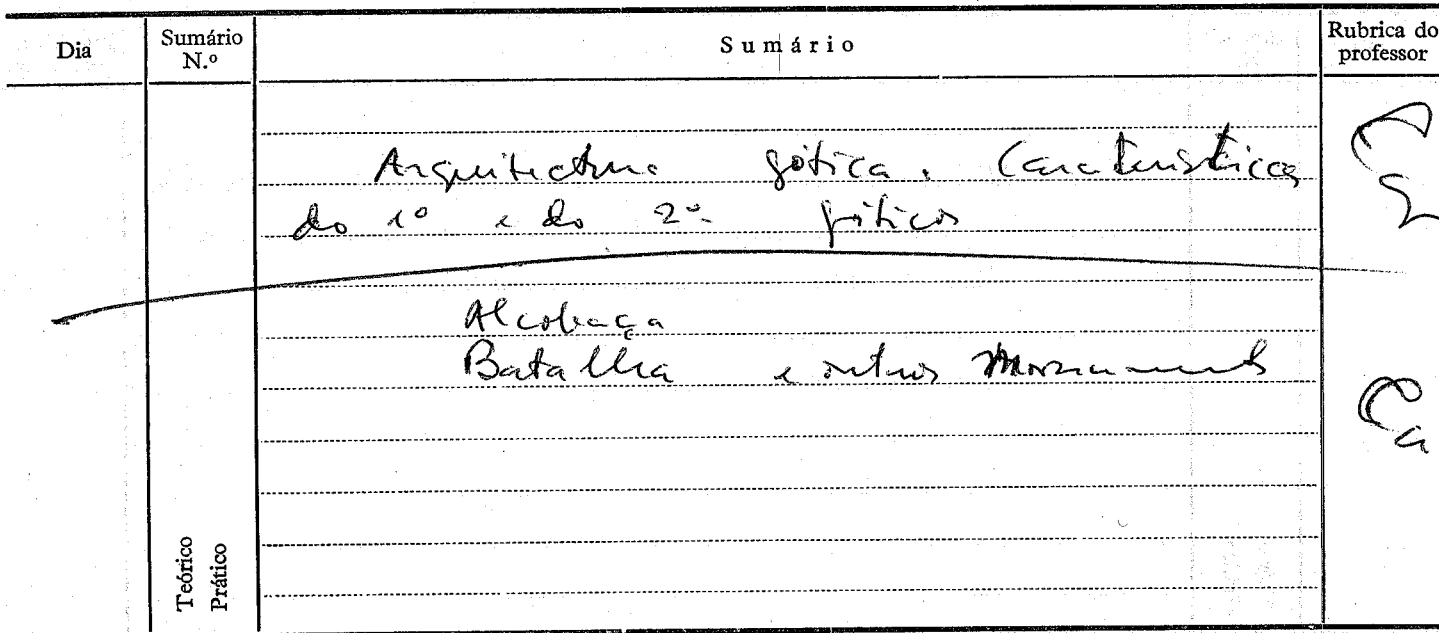 Dia
Sumário N.º
Sumário
Rubrica do professor
Arquitectura gótica. Características
do 1º e do 2º góticos
Alcobaça
Batalha e outros
Teórico
Prático